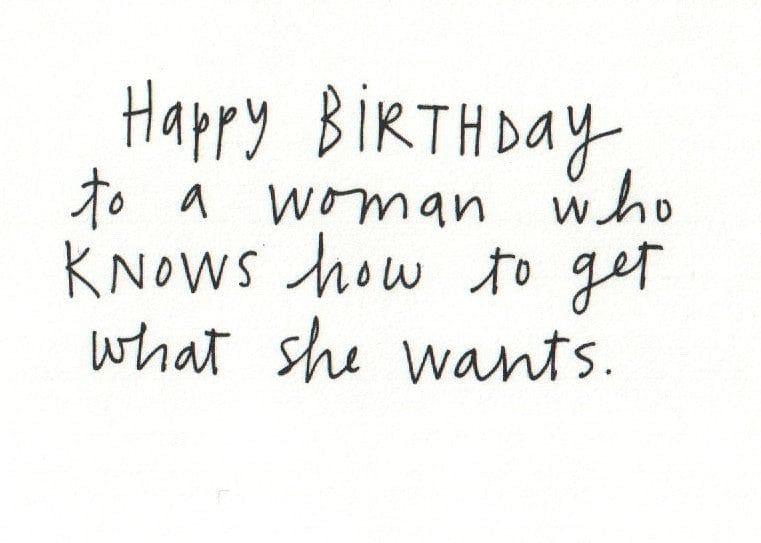 Happy BiRTHDay
to a woman who
KNOWS how to get
what she wants.